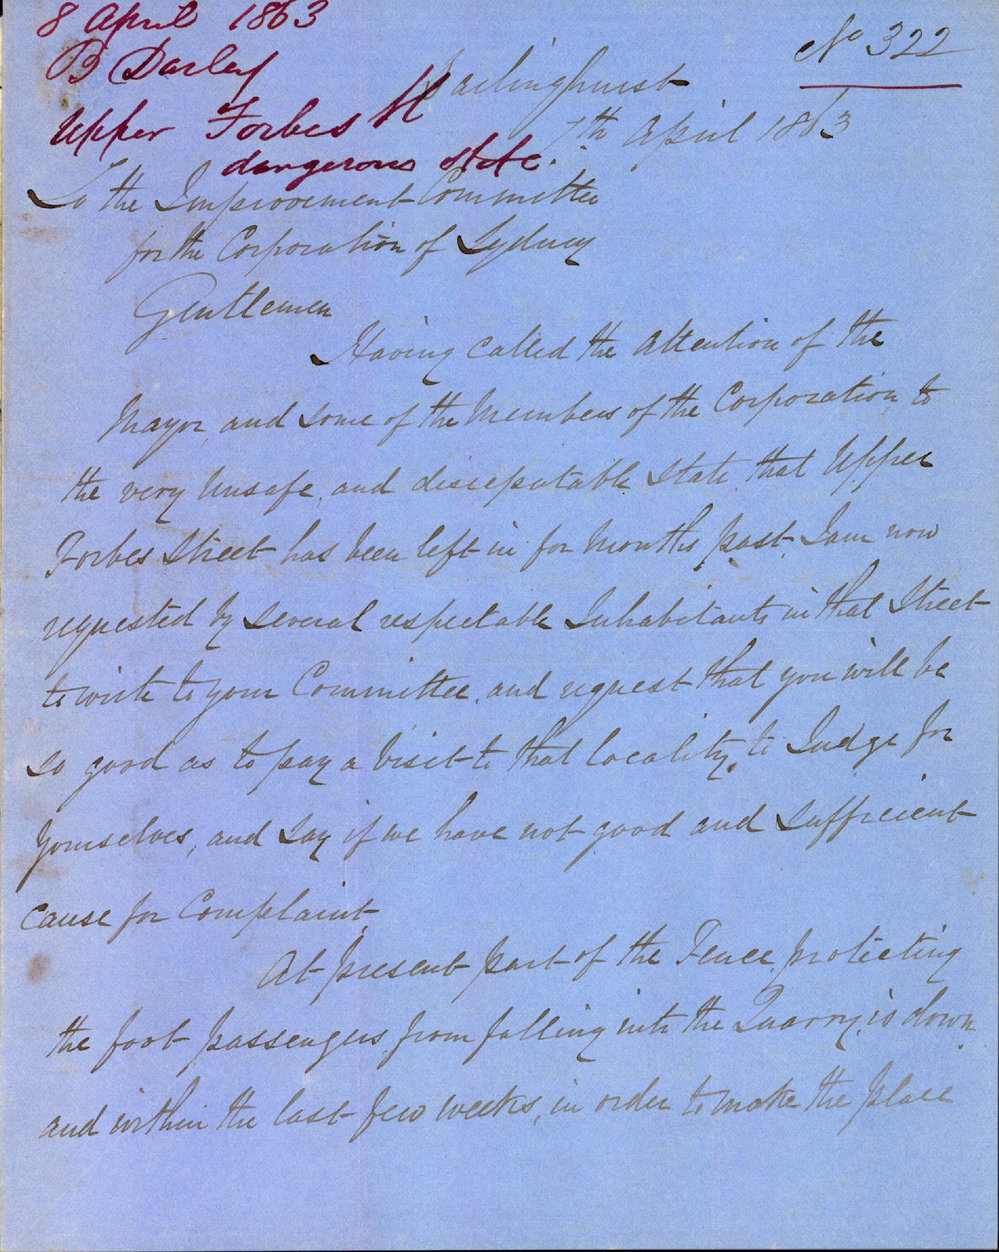 8 April 1863
No 322
B Darley
Darlinghurst
Upper Forbes St
7th April 1863
dangerous state.
To the Improvement Committee
for the Corporation of Sydney
Gentlemen
Having called the attention of the
Mayor and some of the Members of the Corporation to
the very unsafe, and disreputable state, that Upper
Forbes Street has been left in for months past, I am now
requested by several respectable Inhabitants in that Street
to write to your Committee, and request that you will be
so good as to pay a visit to that locality, to Judge for
yourselves, and say if we have not good and sufficient
cause for Complaint.
At present part of the Fence protecting
the foot passengers from falling into the Quarry, is down
and within the last few weeks, in order to make the place